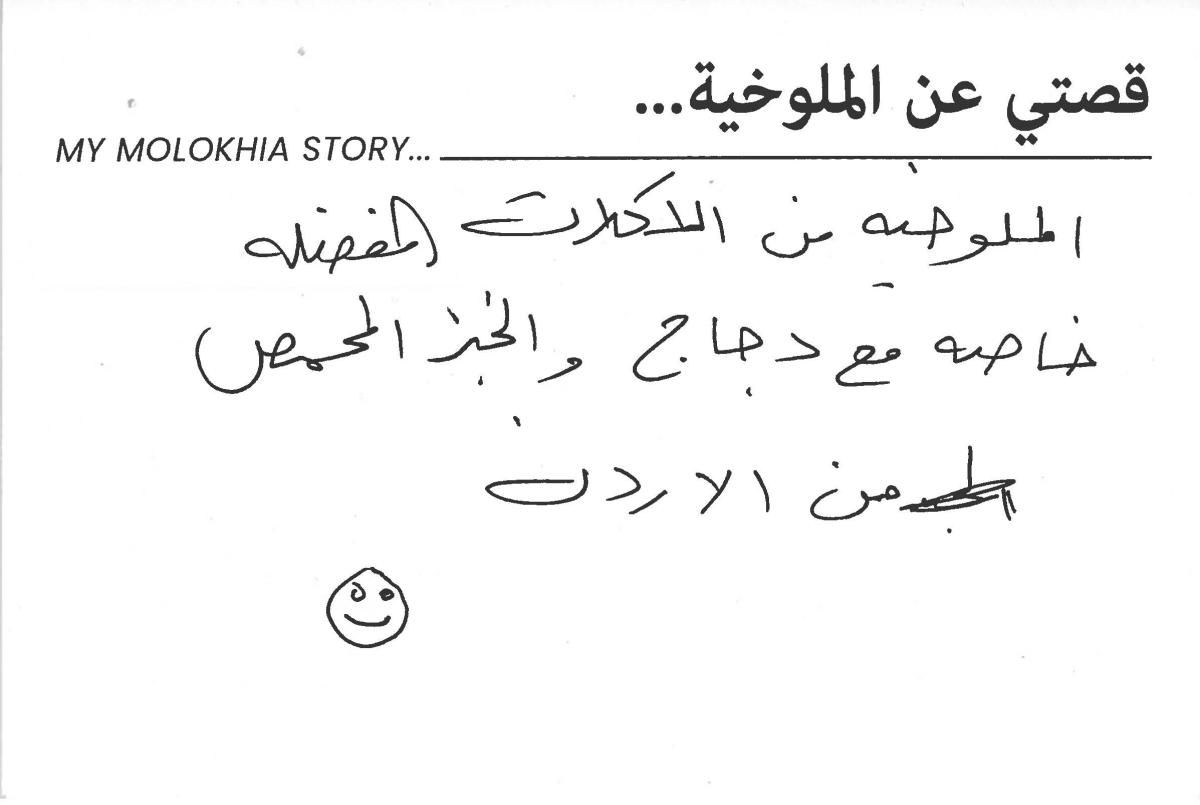 قصتي عن الملوخية...
MY MOLOKHIA STORY...
الملوخيه من الاكلات المفضله
خاصه مع دجاج والخبز المحمص
من الاردن